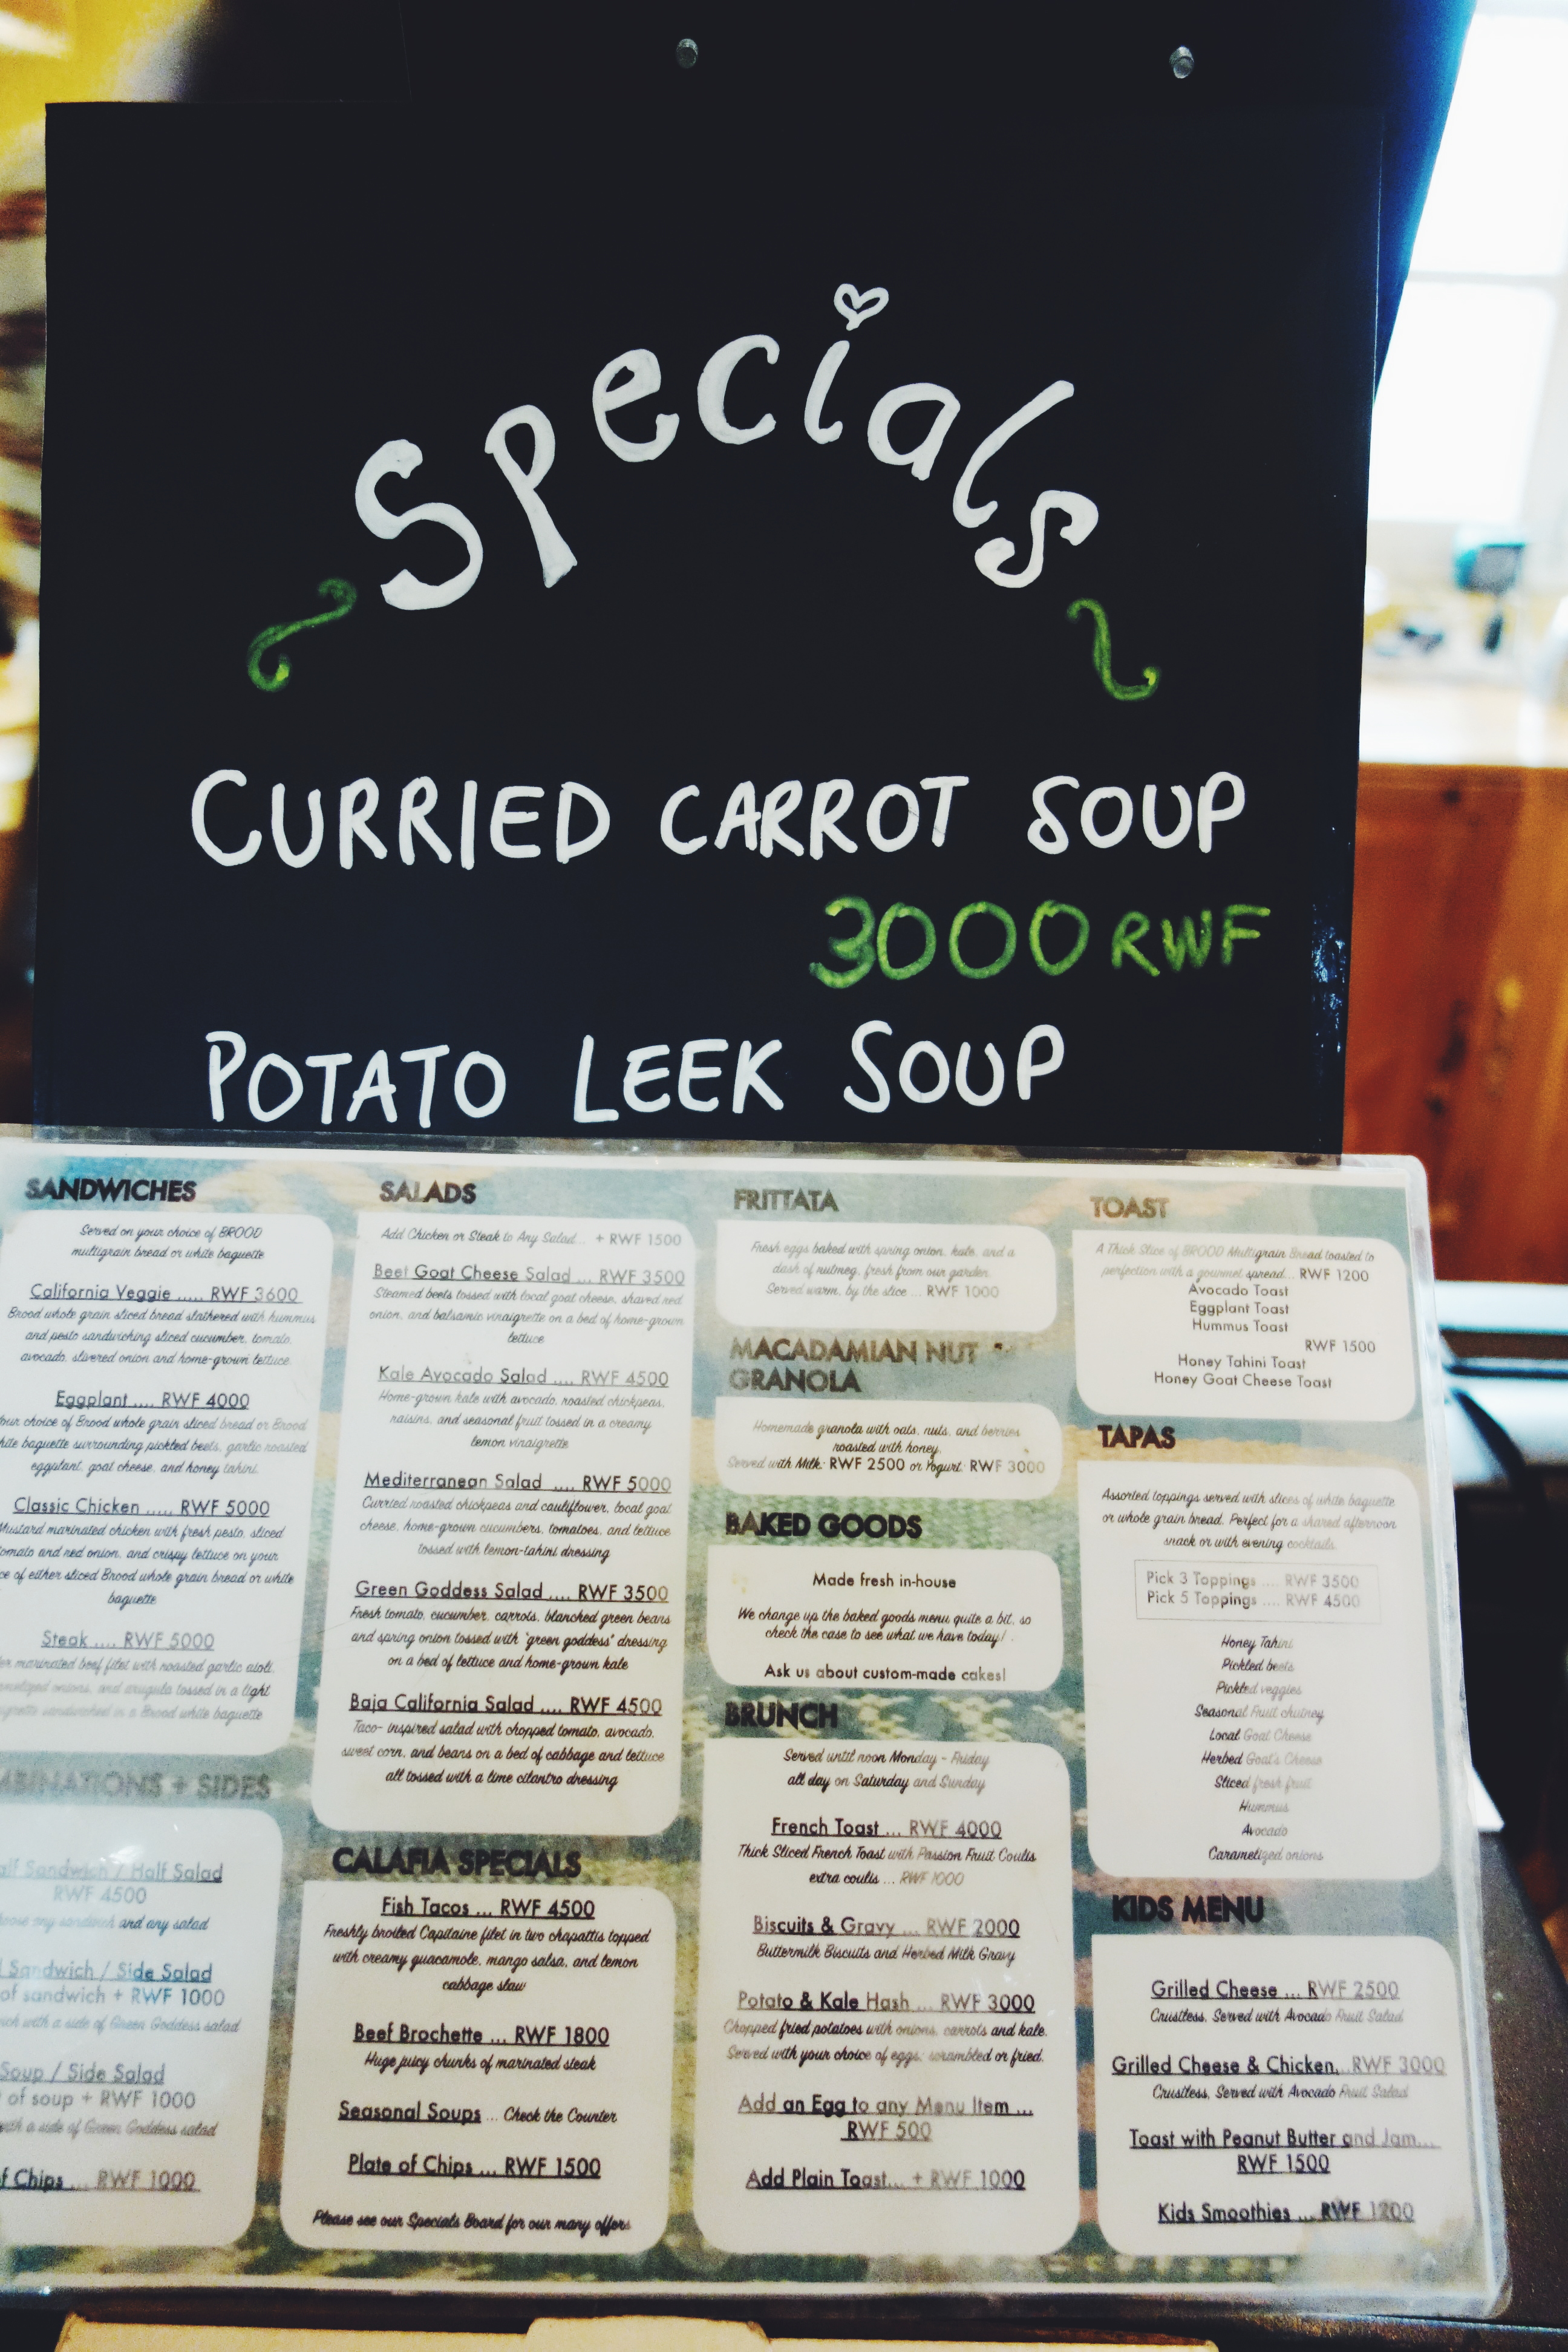 Specials
CURRIED CARROT SOUP
3000 RWF
POTATO LEEK SOUP
SANDWICHES
Served on your choice of BROOD
multigrain bread or white baguette
California Veggie ..... RWF 3600
Brood whole grain sliced bread slathered with hummus
and pesto sandwiching sliced cucumber, tomato,
avocado, slivered onion and home-grown lettuce.
Eggplant .... RWF 4000
our choice of Brood whole grain sliced bread or Brood
hite baguette surrounding pickled beets, garlic roasted
eggplant, goat cheese, and honey tahini.
Classic Chicken ..... RWF 5000
Mustard marinated chicken with fresh pesto, sliced
omato and red onion, and crispy lettuce on your
ce of either sliced Brood whole grain bread or white
baguette
Steak .... RWF 5000
marinated beef filet with roasted garlic aioli,
onions, and arugula tossed in a light
sandwiched in a Brood white baguette
MBINATIONS + SIDES
alf Sandwich / Half Salad
RWF 4500
oose any sandwich and any salad
Sandwich / Side Salad
of sandwich + RWF 1000
with a side of Green Goddess salad
Soup / Side Salad
of soup + RWF 1000
with a side of Green Goddess salad
f Chips ... RWF 1000
SALADS
Add Chicken or Steak to Any Salad... + RWF 1500
Beet Goat Cheese Salad ... RWF 3500
Steamed beets tossed with local goat cheese, shaved red
onion, and balsamic vinaigrette on a bed of home-grown
lettuce
Kale Avocado Salad .... RWF 4500
Home-grown kale with avocado, roasted chickpeas,
raisins, and seasonal fruit tossed in a creamy
lemon vinaigrette
Mediterranean Salad .... RWF 5000
Curried roasted chickpeas and cauliflower, local goat
cheese, home-grown cucumbers, tomatoes, and lettuce
tossed with lemon-tahini dressing
Green Goddess Salad .... RWF 3500
Fresh tomato, cucumber, carrots, blanched green beans
and spring onion tossed with "green goddess" dressing
on a bed of lettuce and home-grown kale
Baja California Salad .... RWF 4500
Taco- inspired salad with chopped tomato, avocado,
sweet corn, and beans on a bed of cabbage and lettuce
all tossed with a lime cilantro dressing
CALAFIA SPECIALS
Fish Tacos ... RWF 4500
Freshly broiled Capitaine filet in two chapattis topped
with creamy guacamole, mango salsa, and lemon
cabbage slaw
Beef Brochette ... RWF 1800
Huge juicy chunks of marinated steak
Seasonal Soups ... Check the Counter
Plate of Chips ... RWF 1500
Please see our Specials Board for our many offers
FRITTATA
Fresh eggs baked with spring onion, kale, and a
dash of nutmeg, fresh from our garden.
Served warm, by the slice ... RWF 1000
MACADAMIAN NUT
GRANOLA
Homemade granola with oats, nuts, and berries
roasted with honey.
Served with Milk: RWF 2500 or Yogurt: RWF 3000
BAKED GOODS
Made fresh in-house
We change up the baked goods menu quite a bit, so
check the case to see what we have today!
Ask us about custom-made cakes!
BRUNCH
Served until noon Monday - Friday
all day on Saturday and Sunday
French Toast ... RWF 4000
Thick Sliced French Toast with Passion Fruit Coulis
extra coulis ... RWF 1000
Biscuits & Gravy ... RWF 2000
Buttermilk Biscuits and Herbed Milk Gravy
Potato & Kale Hash ... RWF 3000
Chopped fried potatoes with onions, carrots and kale.
Served with your choice of eggs, scrambled or fried.
Add an Egg to any Menu Item ...
RWF 500
Add Plain Toast... + RWF 1000
TOAST
A Thick Slice of BROOD Multigrain Bread toasted to
perfection with a gourmet spread... RWF 1200
Avocado Toast
Eggplant Toast
Hummus Toast
RWF 1500
Honey Tahini Toast
Honey Goat Cheese Toast
TAPAS
Assorted toppings served with slices of white baguette
or whole grain bread. Perfect for a shared afternoon
snack or with evening cocktails.
Pick 3 Toppings .... RWF 3500
Pick 5 Toppings .... RWF 4500
Honey Tahini
Pickled beets
Pickled veggies
Seasonal Fruit chutney
Local Goat Cheese
Herbed Goat's Cheese
Sliced fresh fruit
Hummus
Avocado
Caramelized onions
KIDS MENU
Grilled Cheese ... RWF 2500
Crustless, Served with Avocado Fruit Salad
Grilled Cheese & Chicken...RWF 3000
Crustless, Served with Avocado Fruit Salad
Toast with Peanut Butter and Jam...
RWF 1500
Kids Smoothies ... RWF 1200